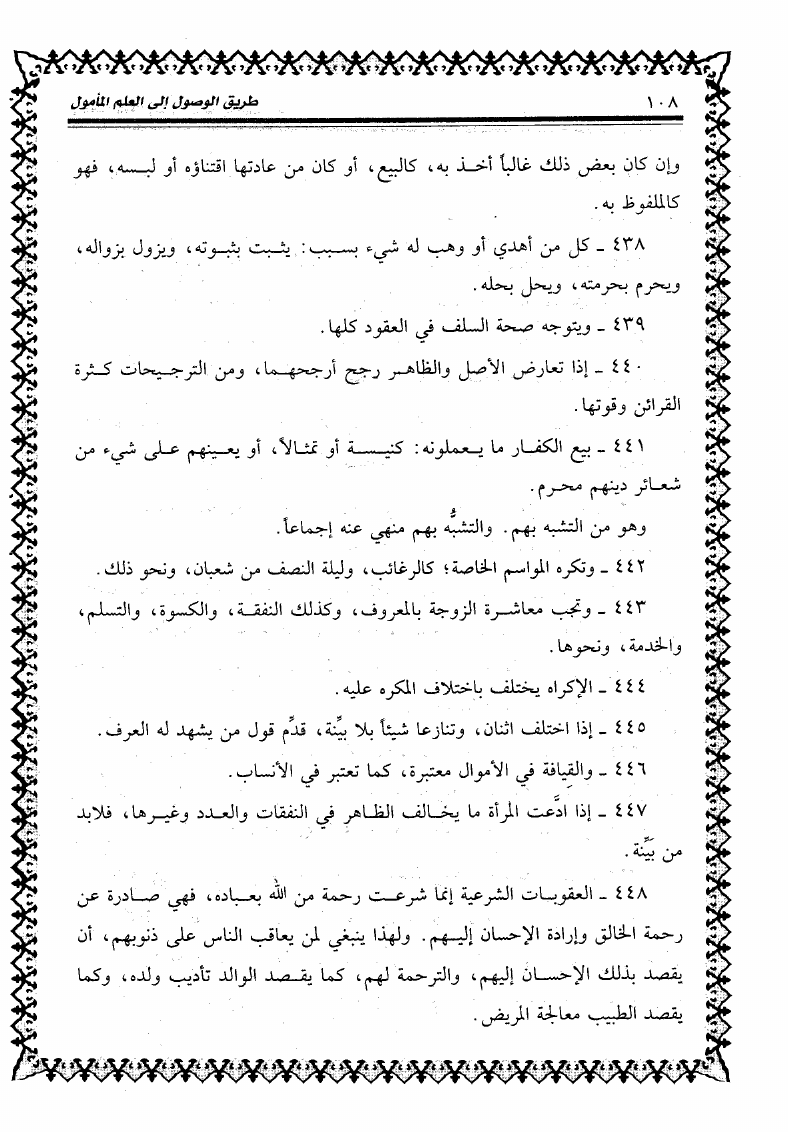 ١٠٨ طريق الوصول إلى العلم المأمول
وإن كان بعض ذلك غالباً أخذ به، كالبيع، أو كان من عادتها اقتناؤه أو لبسه، فهو
كالملفوظ به.
٤٣٨ ـ كل من أهدي أو وهب له شيء بسبب: يثبت بثبوته، ويزول بزواله،
ويحرم بحرمته، ويحل بحله.
٤٣٩ ـ ويتوجه صحة السلف في العقود كلها.
٤٤٠ ـ إذا تعارض الأصل والظاهر رجح أرجحهما، ومن الترجيحات كثرة
القرائن وقوتها.
٤٤١ ـ بيع الكفار ما يعملونه: كنيسة أو تمثالاً، أو يعينهم على شيء من
شعائر دينهم محرم.
وهو من التشبه بهم. والتشبُّه بهم منهي عنه إجماعاً.
٤٤٢ ـ وتكره المواسم الخاصة؛ كالرغائب، وليلة النصف من شعبان، ونحو ذلك.
٤٤٣ ـ وتجب معاشرة الزوجة بالمعروف، وكذلك النفقة، والكسوة، والتسلم،
والخدمة، ونحوها.
٤٤٤ ـ الإكراه يختلف باختلاف المكره عليه.
٤٤٥ ـ إذا اختلف اثنان، وتنازعا شيئاً بلا بيِّنة، قدِّم قول من يشهد له العرف.
٤٤٦ ـ والقِيافة في الأموال معتبرة، كما تعتبر في الأنساب.
٤٤٧ ـ إذا ادَّعت المرأة ما يخالف الظاهر في النفقات والعدد وغيرها، فلابد
من بيِّنة.
٤٤٨ ـ العقوبات الشرعية إنما شرعت رحمة من الله بعباده، فهي صادرة عن
رحمة الخالق وإرادة الإحسان إليهم. ولهذا ينبغي لمن يعاقب الناس على ذنوبهم، أن
يقصد بذلك الإحسان إليهم، والترحمة لهم، كما يقصد الوالد تأديب ولده، وكما
يقصد الطبيب معالجة المريض.